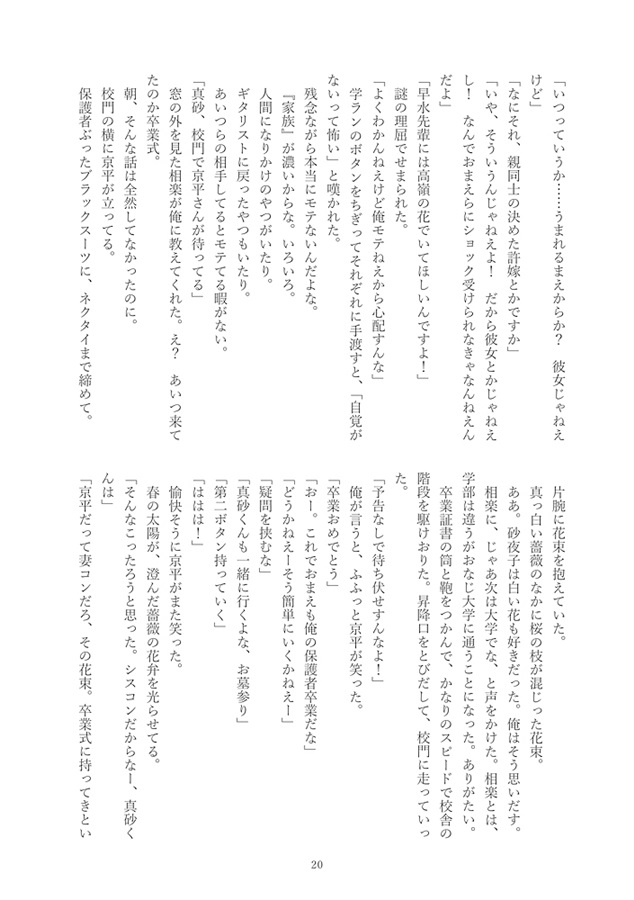 「いつっていうか……うまれるまえからか？　彼女じゃねえ
けど」
「なにそれ、親同士の決めた許嫁とかですか」
「いや、そういうんじゃねえよ！　だから彼女とかじゃねえ
し！　なんでおまえらにショック受けられなきゃなんねえん
だよ」
「早水先輩には高嶺の花でいてほしいんですよ！」
　謎の理屈でせまられた。
「よくわかんねえけど俺モテねえから心配すんな」
　学ランのボタンをちぎってそれぞれに手渡すと、「自覚が
ないって怖い」と嘆かれた。
　残念ながら本当にモテないんだよな。
　『家族』が濃いからな。いろいろ。
　人間になりかけのやつがいたり。
　ギタリストに戻ったやつもいたり。
　あいつらの相手してるとモテてる暇がない。
「真砂、校門で京平さんが待ってる」
　窓の外を見た相楽が俺に教えてくれた。え？　あいつ来て
たのか卒業式。
　朝、そんな話は全然してなかったのに。
　校門の横に京平が立ってる。
　保護者ぶったブラックスーツに、ネクタイまで締めて。
　片腕に花束を抱えていた。
　真っ白い薔薇のなかに桜の枝が混じった花束。
　ああ。砂夜子は白い花も好きだった。俺はそう思いだす。
　相楽に、じゃあ次は大学でな、と声をかけた。相楽とは、
学部は違うがおなじ大学に通うことになった。ありがたい。
　卒業証書の筒と鞄をつかんで、かなりのスピードで校舎の
階段を駆けおりた。昇降口をとびだして、校門に走っていっ
た。
「予告なしで待ち伏せすんなよ！」
　俺が言うと、ふふっと京平が笑った。
「卒業おめでとう」
「おー。これでおまえも俺の保護者卒業だな」
「どうかねえーそう簡単にいくかねえー」
「疑問を挟むな」
「真砂くんも一緒に行くよな、お墓参り」
「第二ボタン持っていく」
「ははは！」
　愉快そうに京平がまた笑った。
　春の太陽が、澄んだ薔薇の花弁を光らせてる。
「そんなこったろうと思った。シスコンだからなー、真砂く
んは」
「京平だって妻コンだろ、その花束。卒業式に持ってきとい
20